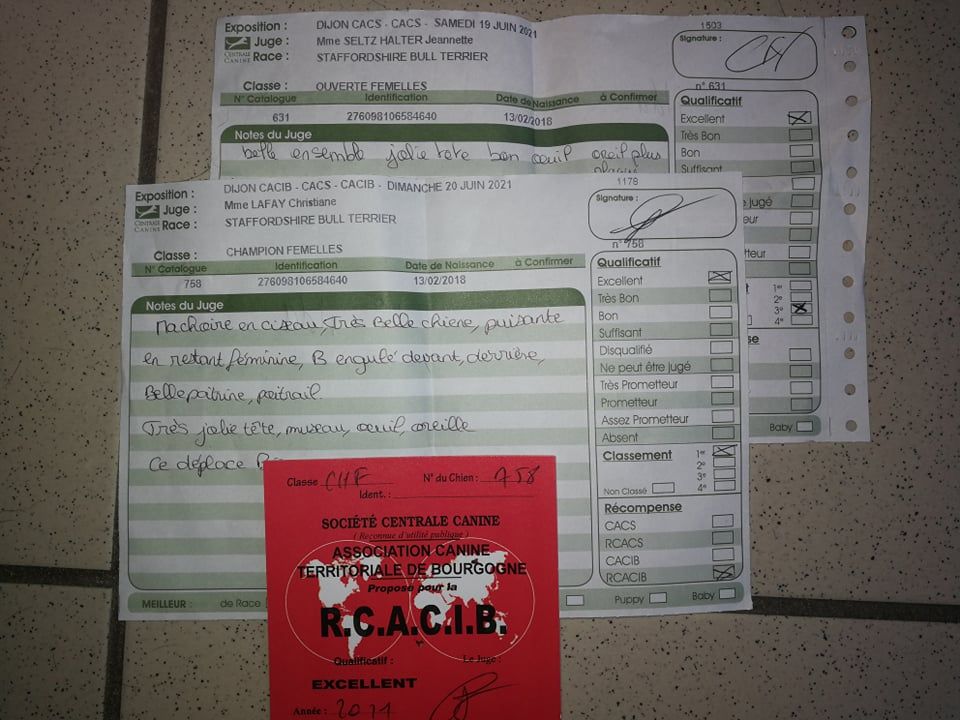 Exposition : DIJON CACS - CACS - SAMEDI 19 JUIN 2021
1503
Juge : Mme SELTZ HALTER Jeannette
Signature :
CENTRALE CANINE
Race : STAFFORDSHIRE BULL TERRIER
Classe : OUVERTE FEMELLES
n° 631
N° Catalogue Identification Date de Naissance à Confirmer
Qualificatif
631 276098106584640 13/02/2018
Excellent
Notes du Juge
Très Bon
belle ensemble jolie tete bon oeuil oreil plus
Bon
Suffisant
é jugé
eur
1er
2e
3e
4e
Baby
Exposition : DIJON CACIB - CACS - CACIB - DIMANCHE 20 JUIN 2021
1178
Juge : Mme LAFAY Christiane
Signature :
CENTRALE CANINE
Race : STAFFORDSHIRE BULL TERRIER
n° 758
Classe : CHAMPION FEMELLES
N° Catalogue Identification Date de Naissance à Confirmer
Qualificatif
758 276098106584640 13/02/2018
Excellent
Notes du Juge
Très Bon
Machoire en ciseau, Très Belle chiene, puisante
Bon
Suffisant
en restant féminine, B engulé devant, derrière,
Disqualifié
Ne peut être jugé
Belle poitrine, poitrail.
Très Prometteur
Prometteur
Très jolie tête, museau, oeuil, oreille
Assez Prometteur
Absent
Ce déplace
Classement 1er
2e
3e
Non Classé 4e
Récompense
CACS
RCACS
CACIB
RCACIB
MEILLEUR : de Race Puppy Baby
Classe CHF N° du Chien : 758
Ident. :
SOCIÉTÉ CENTRALE CANINE
( Reconnue d'utilité publique )
ASSOCIATION CANINE
TERRITORIALE DE BOURGOGNE
Proposé pour la
R.C.A.C.I.B.
Qualificatif : Le Juge :
EXCELLENT
Année :